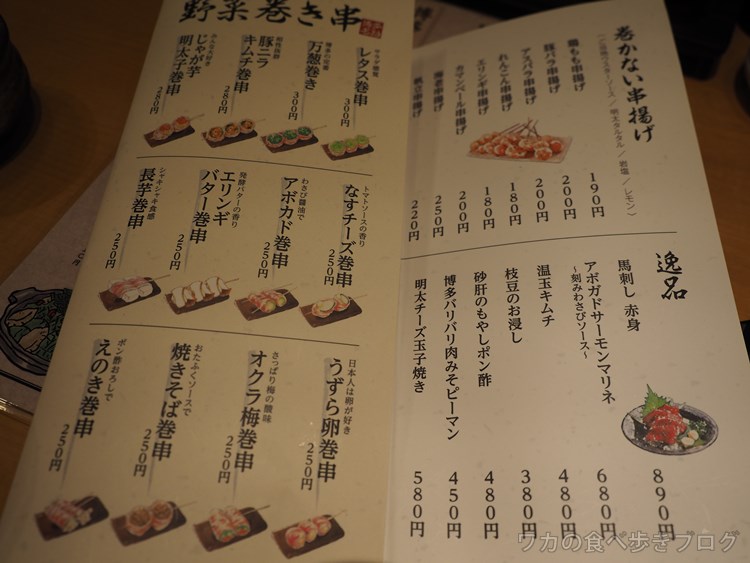 野菜巻き串
サラダ感覚
レタス巻串
300円
博多の定番
万葱巻き
300円
豚ニラ
キムチ巻串
280円
みんな大好き
じゃが芋
明太子巻串
280円
トマトソースの香り
なすチーズ巻串
250円
わさび醤油で
アボカド巻串
250円
発酵バターの香り
エリンギ
バター巻串
250円
シャキシャキ食感
長芋巻串
250円
日本人は卵が好き
うずら卵巻串
250円
さっぱり梅の酸味
オクラ梅巻串
250円
おたふくソースで
焼きそば巻串
250円
ポン酢おろしで
えのき巻串
250円
巻かない串揚げ
ウスターソース／明太タルタル／岩塩／レモン
鶏もも串揚げ
190円
豚バラ串揚げ
200円
アスパラ串揚げ
200円
れんこん串揚げ
180円
エリンギ串揚げ
180円
カマンベール串揚げ
200円
海老串揚げ
250円
帆立串揚げ
220円
逸品
馬刺し 赤身
890円
アボガドサーモンマリネ
～刻みわさびソース～
680円
温玉キムチ
480円
枝豆のお浸し
380円
砂肝のもやしポン酢
480円
博多パリパリ肉みそピーマン
450円
明太チーズ玉子焼き
580円
ワカの食べ歩きブログ